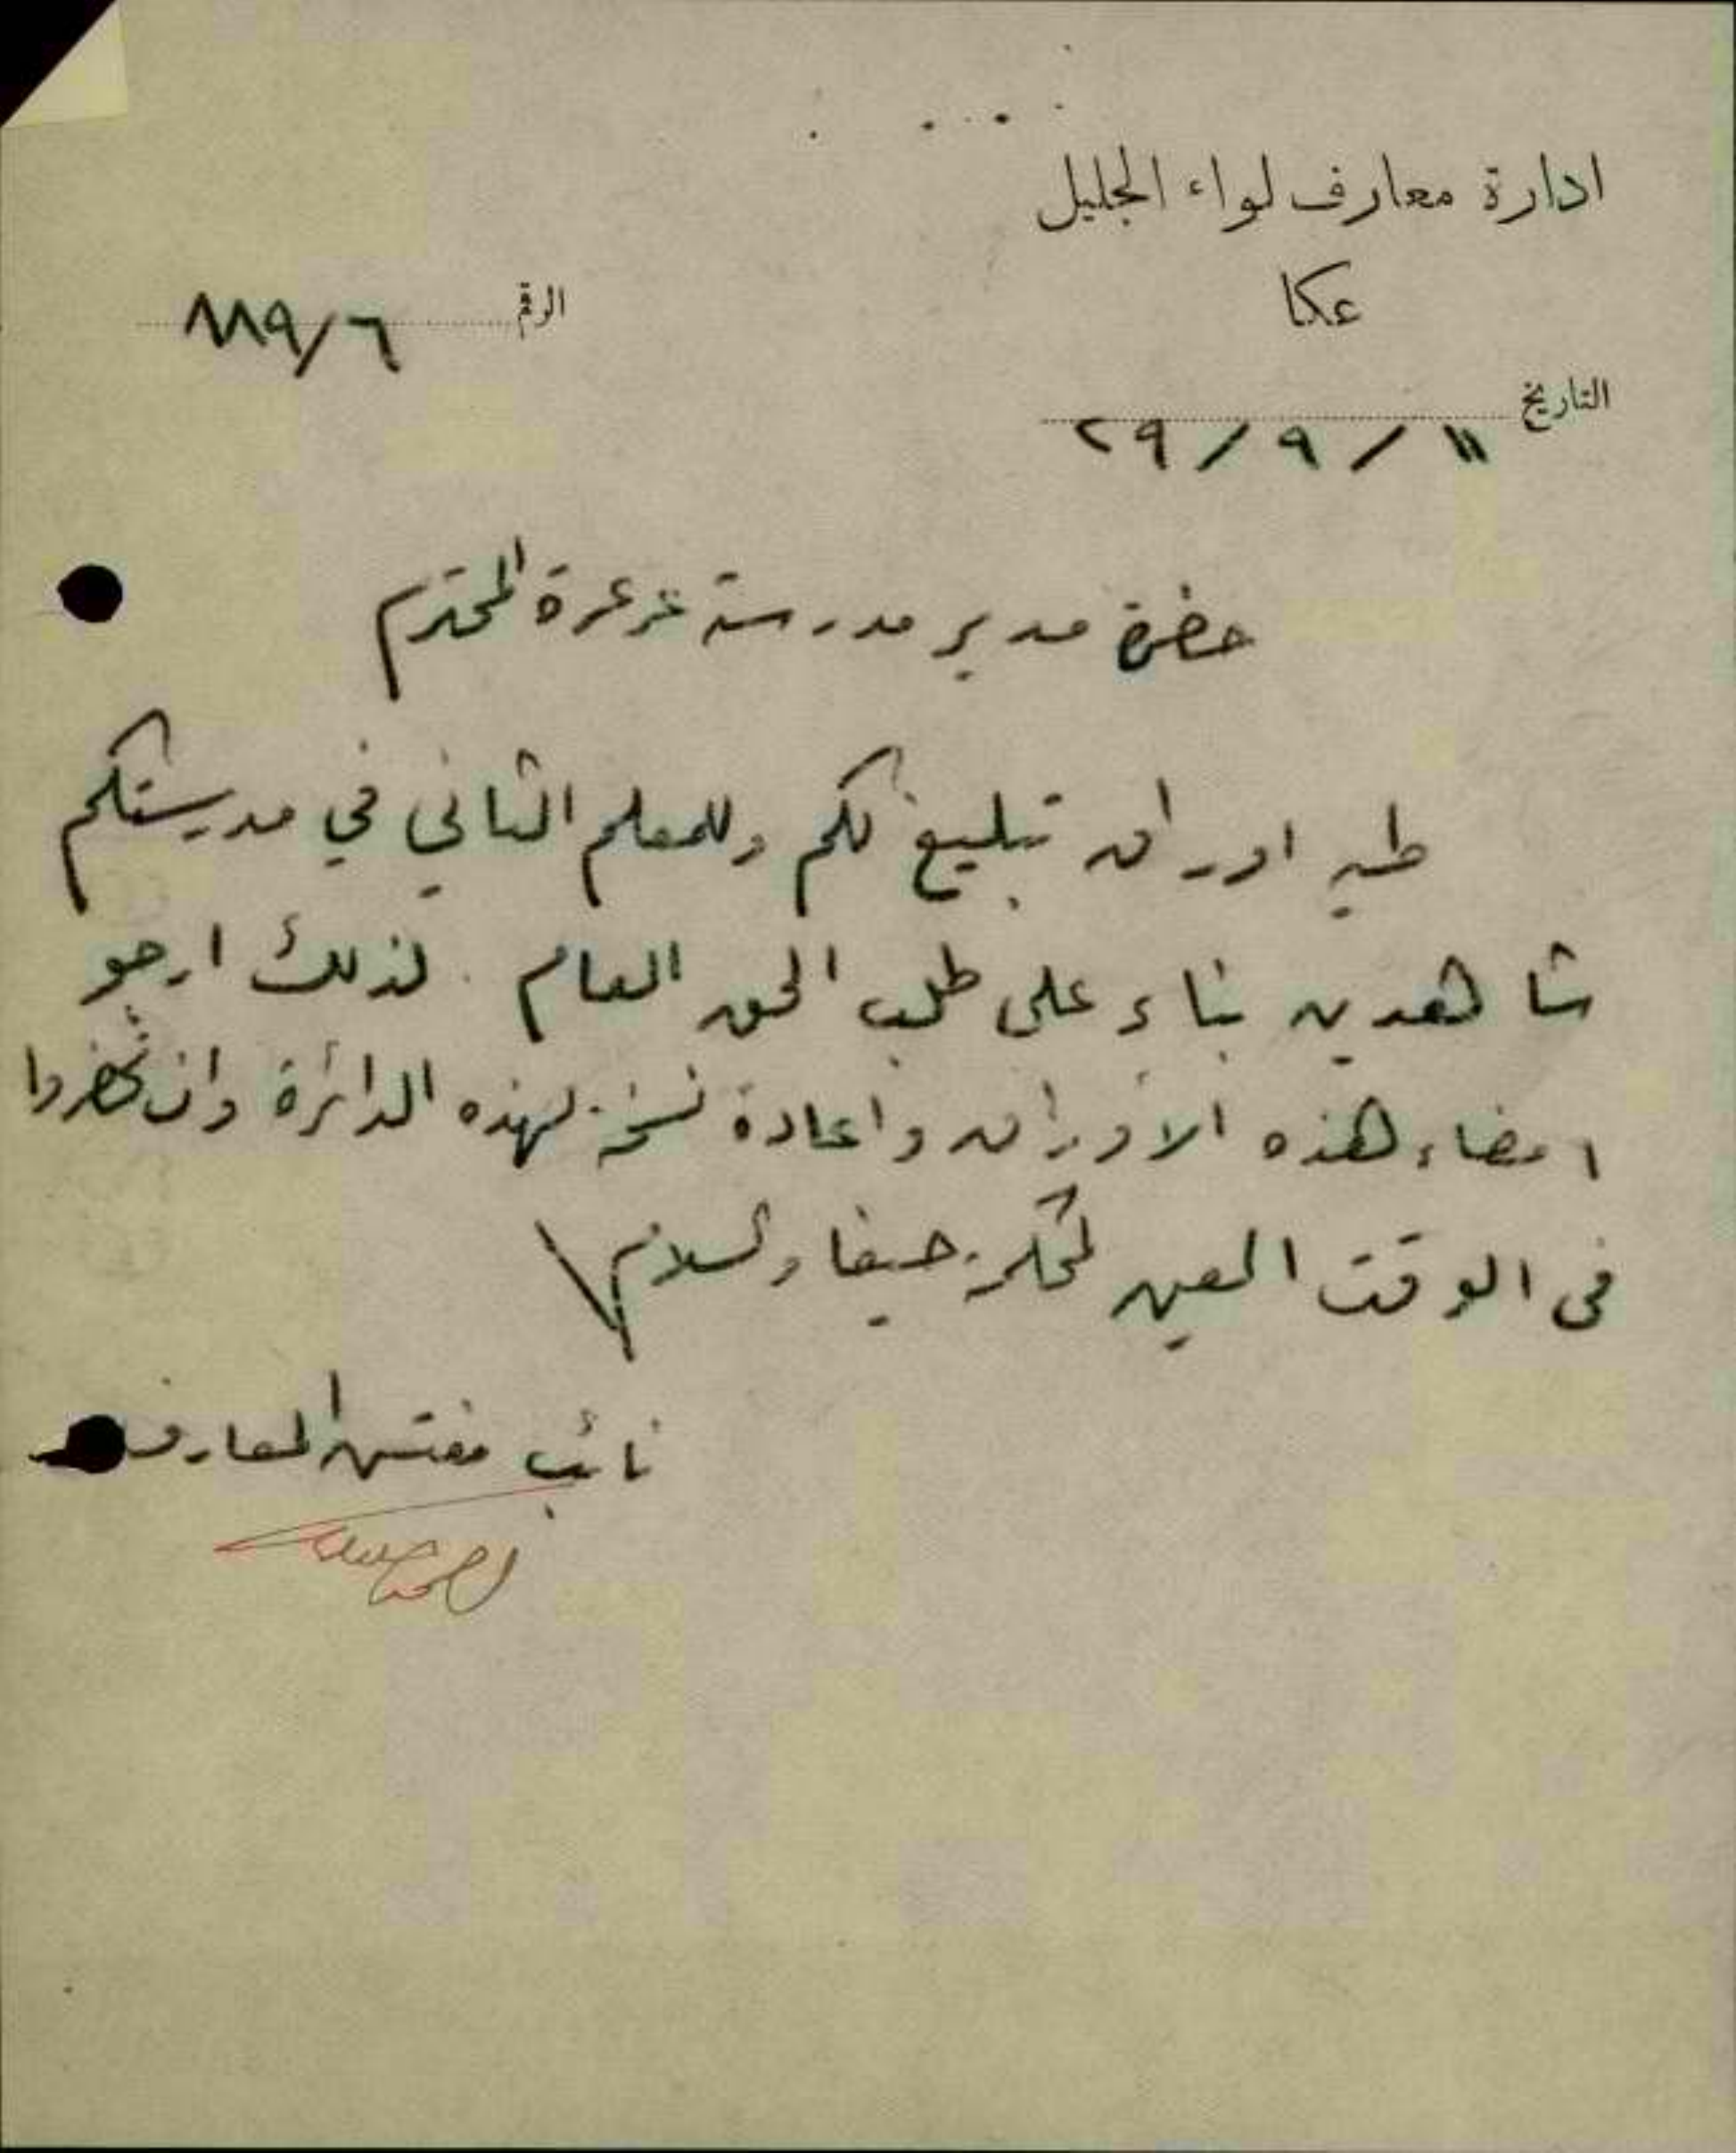 ادارة معارف لواء الجليل
عكا
الرقم ٨٨٩/٦
التاريخ ١١ / ٩ / ٢٩
حضرة مدير مدرسة عرعرة المحترم
طيه اوراق تبليغ لكم وللمعلم الثاني في مدرستكم
شاهدين بناء على طلب الحق العام . لذلك ارجو
امضاء هذه الأوراق واعادة نسخة لهذه الدائرة وان تحضروا
في الوقت المعين لمحكمة حيفا والسلام
نائب مفتش المعارف